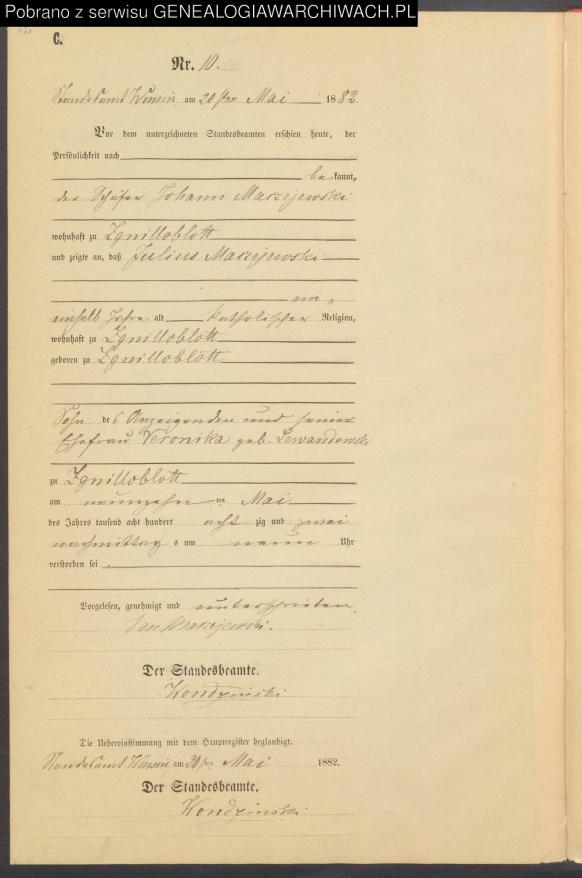 Pobrano z serwisu GENEALOGIAWARCHIWACH.PL
C.
Nr. 10.
Standesamt am 20 ten Mai 1882
Vor dem unterzeichneten Standesbeamten erschien heute, der
Persönlichkeit nach
be kannt,
der Schäfer Johann Maczejewski
wohnhaft zu Zgnilloblott
und zeigte an, daß Julius Maczejewski
ein
einhalb Jahre alt katholischer Religion,
wohnhaft zu Zgnilloblott
geboren zu Zgnilloblott
Sohn des Anzeigenden und seiner
Ehefrau Veronika geb. Lewandowski
zu Zgnilloblott
am neunzehn ten Mai
des Jahres tausend acht hundert acht zig und zwei
nachmittag s um neun Uhr
verstorben sei.
Vorgelesen, genehmigt und unterschrieben.
Jan Maczejewski.
Der Standesbeamte.
Kendzinski
Die Uebereinstimmung mit dem Hauptregister beglaubigt.
Standesamt am 20 ten Mai 1882.
Der Standesbeamte.
Kendzinski